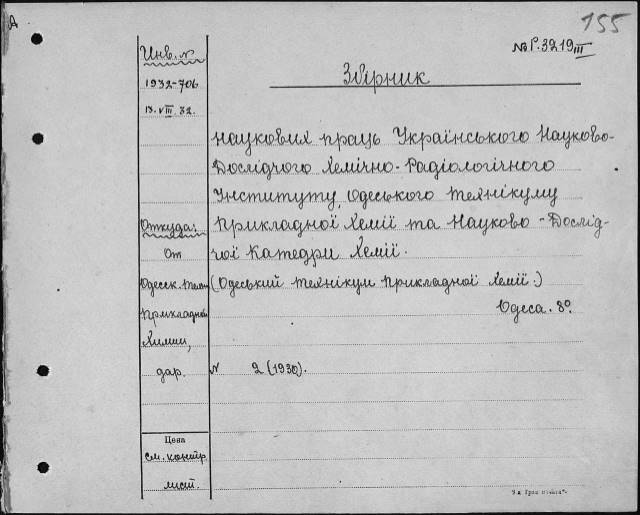 А
155
№ Р.3219 III
Инв. №
1932-706
13.VIII.32.
Збірник
наукових праць Українського Науково-
Дослідчого Хемічно-Радіологічного
Інституту, Одеського технікуму
Прикладної Хемії та Науково-Дослід-
чої Катедри Хемії.
(Одеський технікум прикладної хемії.)
Одеса. 8°.
№ 2 (1930).
Откуда:
От
Одесск. Техн
Прикладной
Химии,
дар.
Цена
см. контр.
лист.